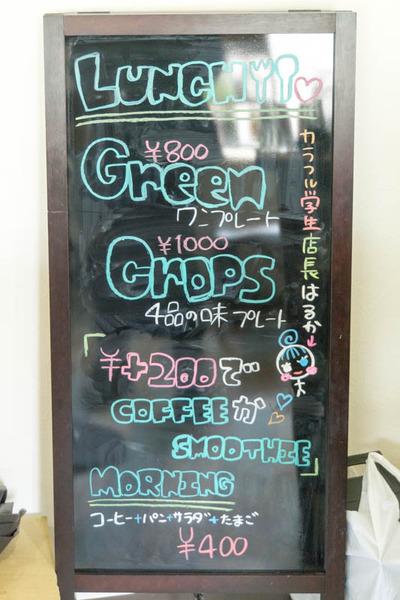 LUNCH
¥800
Green
ワンプレート
¥1000
Crops
4品の味プレート
「¥+200で
COFFEEか
SMOOTHIE」
MORNING
コーヒー+パン+サラダ+たまご
¥400
カラフル学生店長はるか